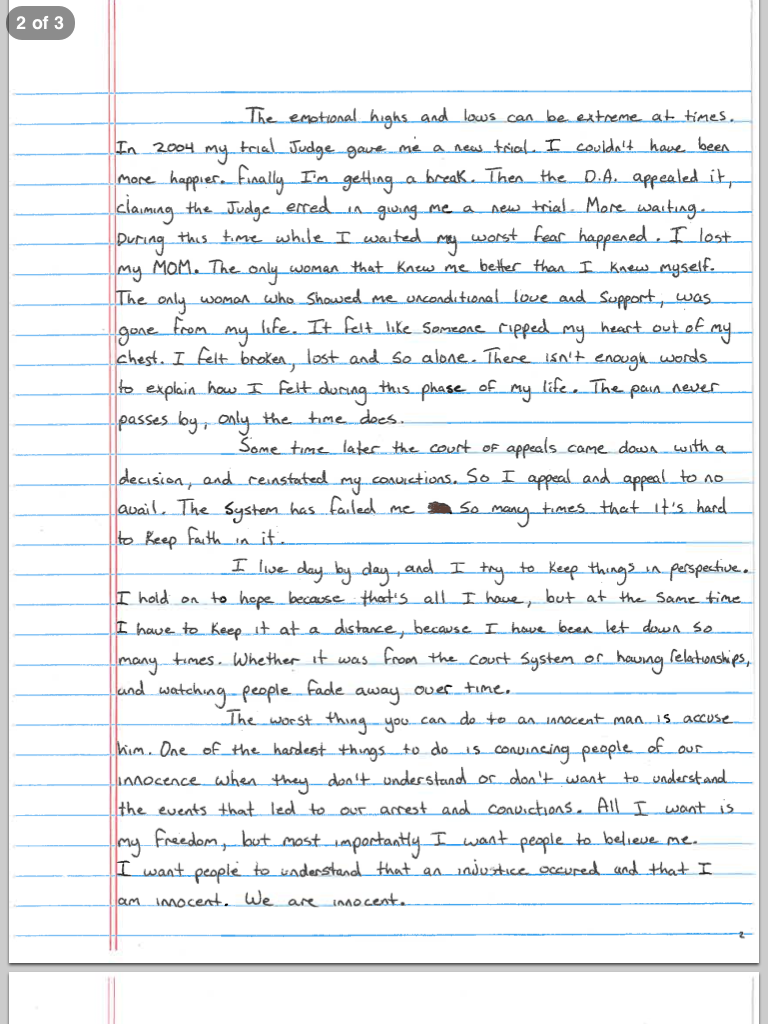 2 of 3
The emotional highs and lows can be extreme at times.
In 2004 my trial Judge gave me a new trial. I couldn't have been
more happier. Finally I'm getting a break. Then the D.A. appealed it,
claiming the Judge erred in giving me a new trial. More waiting.
During this time while I waited my worst fear happened. I lost
my MOM. The only woman that knew me better than I knew myself.
The only woman who showed me unconditional love and support, was
gone from my life. It felt like someone ripped my heart out of my
chest. I felt broken, lost and so alone. There isn't enough words
to explain how I felt during this phase of my life. The pain never
passes by, only the time does.
Some time later the court of appeals came down with a
decision, and reinstated my convictions. So I appeal and appeal to no
avail. The system has failed me so many times that it's hard
to keep faith in it.
I live day by day, and I try to keep things in perspective.
I hold on to hope because that's all I have, but at the same time
I have to keep it at a distance, because I have been let down so
many times. Whether it was from the court system or having relationships,
and watching people fade away over time.
The worst thing you can do to an innocent man is accuse
him. One of the hardest things to do is convincing people of our
innocence when they don't understand or don't want to understand
the events that led to our arrest and convictions. All I want is
my freedom, but most importantly I want people to believe me.
I want people to understand that an injustice occured and that I
am innocent. We are innocent.
2